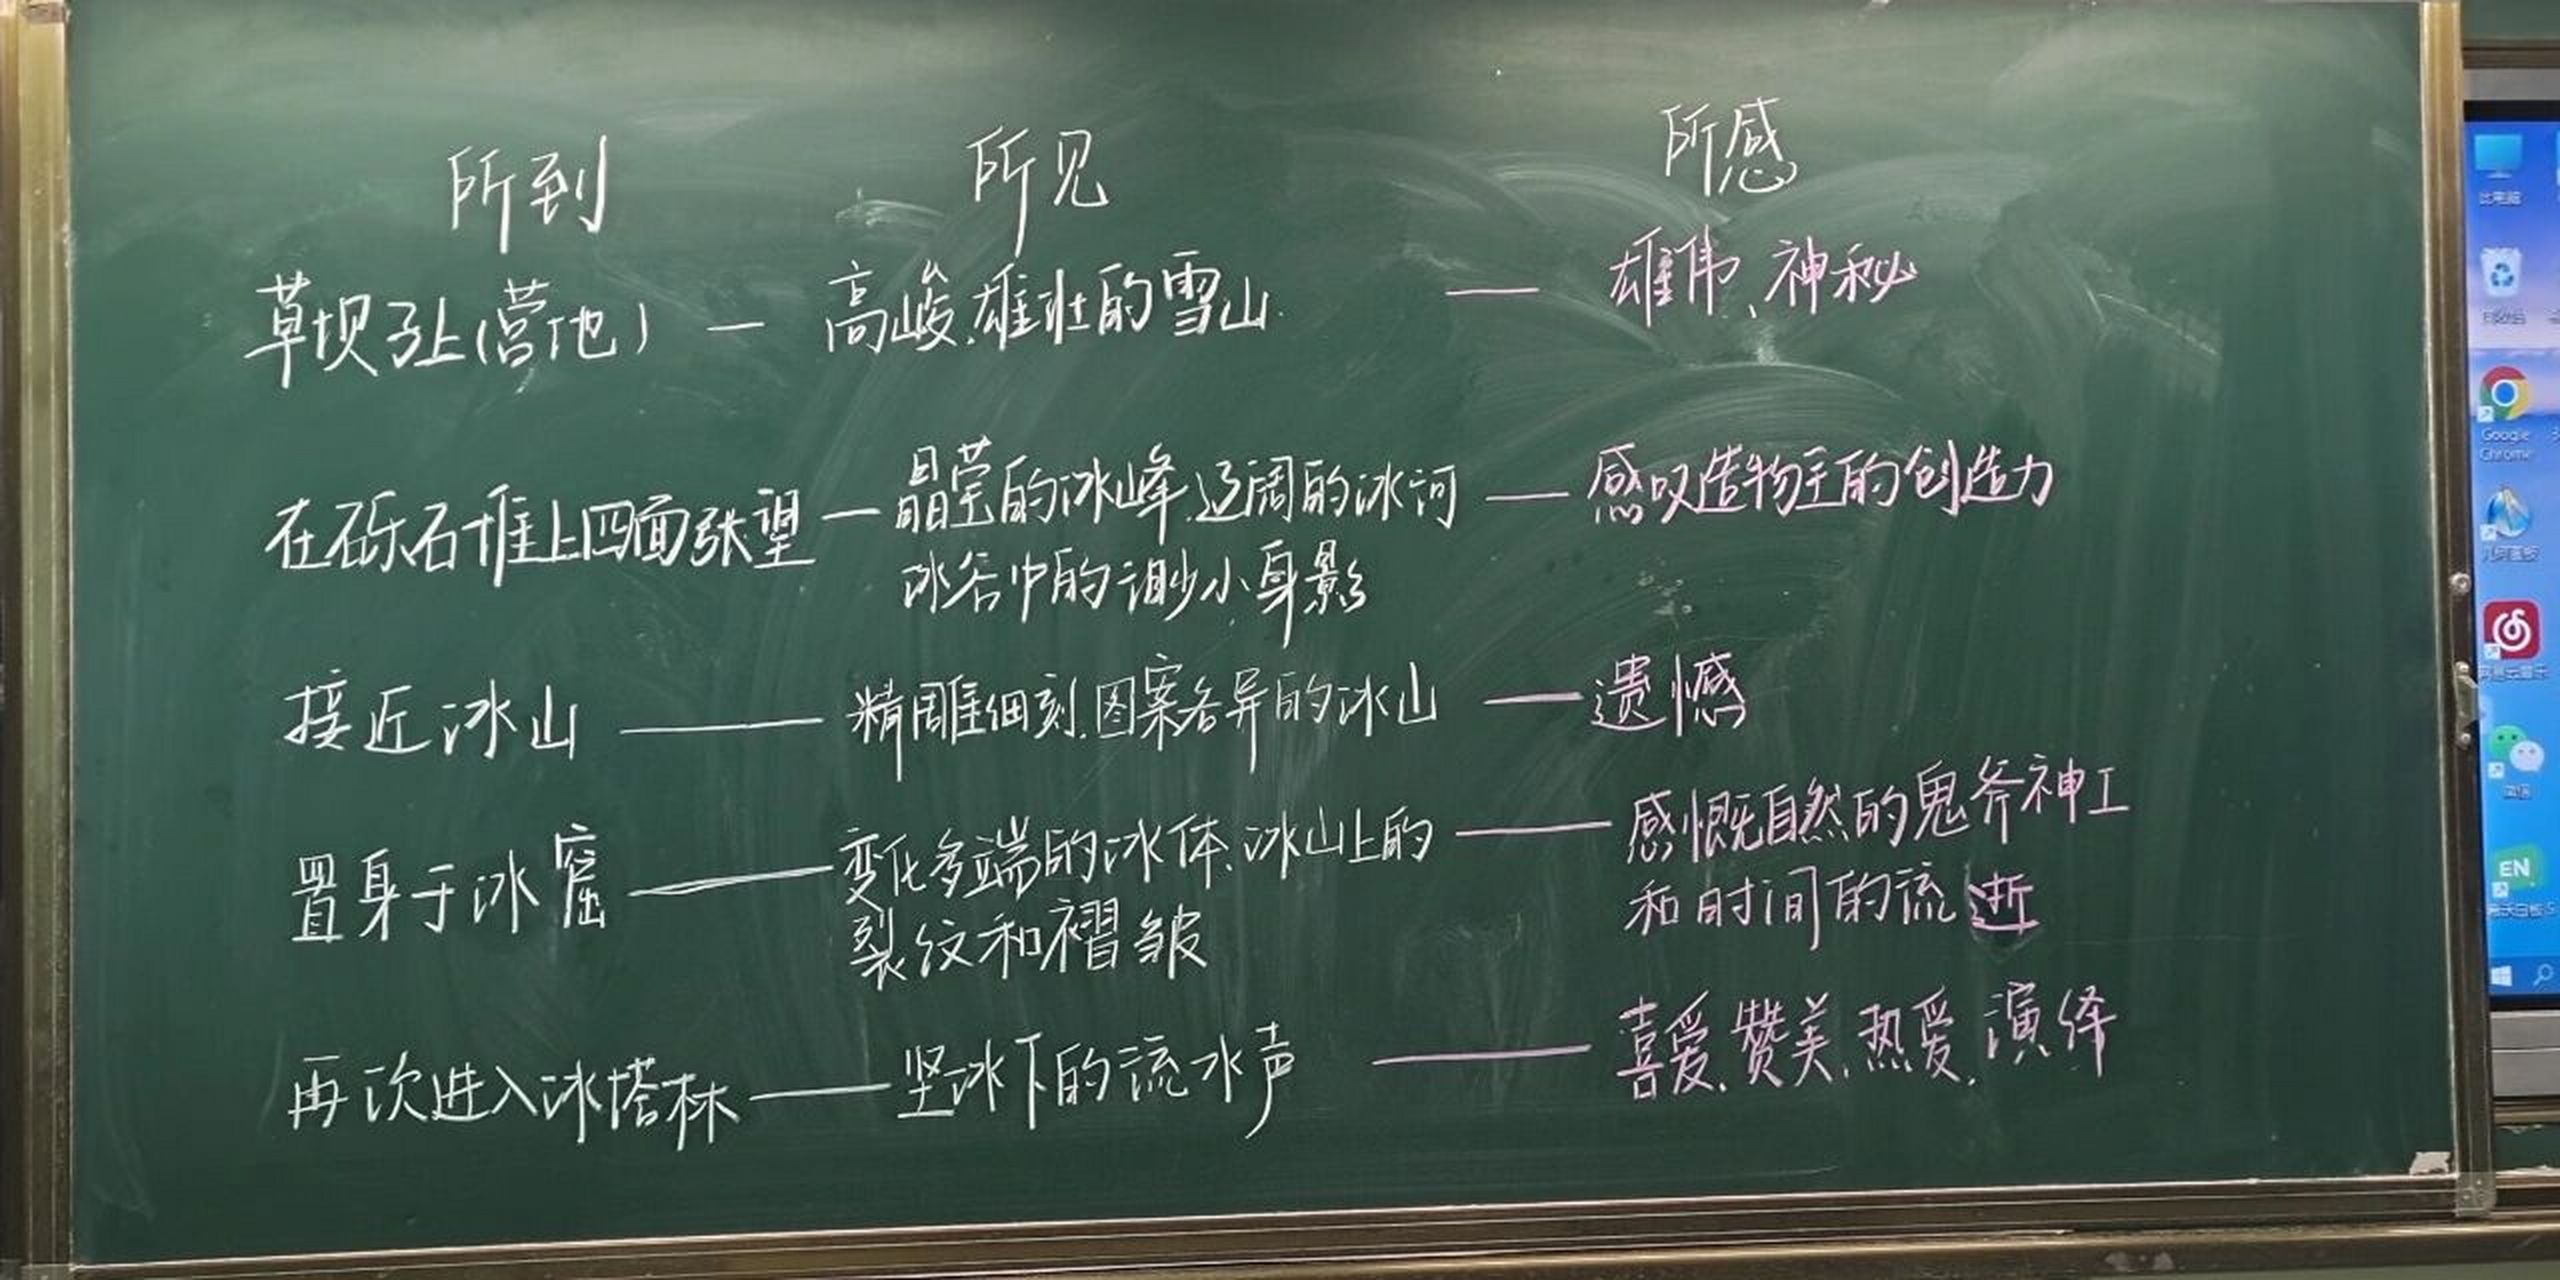 所到 所见 所感
草坝子上(营地) — 高峻、雄壮的雪山 — 雄伟、神秘
在砾石堆上四面张望 — 晶莹的冰峰、辽阔的冰河 — 感叹造物主的创造力
冰谷中的渺小身影
接近冰山 — 精雕细刻、图案各异的冰山 — 遗憾
置身于冰窟 — 变化多端的冰体、冰山上的 — 感慨自然的鬼斧神工
裂纹和褶皱 和时间的流逝
再次进入冰塔林 — 坚冰下的流水声 — 喜爱、赞美、热爱、演绎
此电脑
回收站
Google
Chrome
几何画板
网易云音乐
微信
EN
希沃白板5